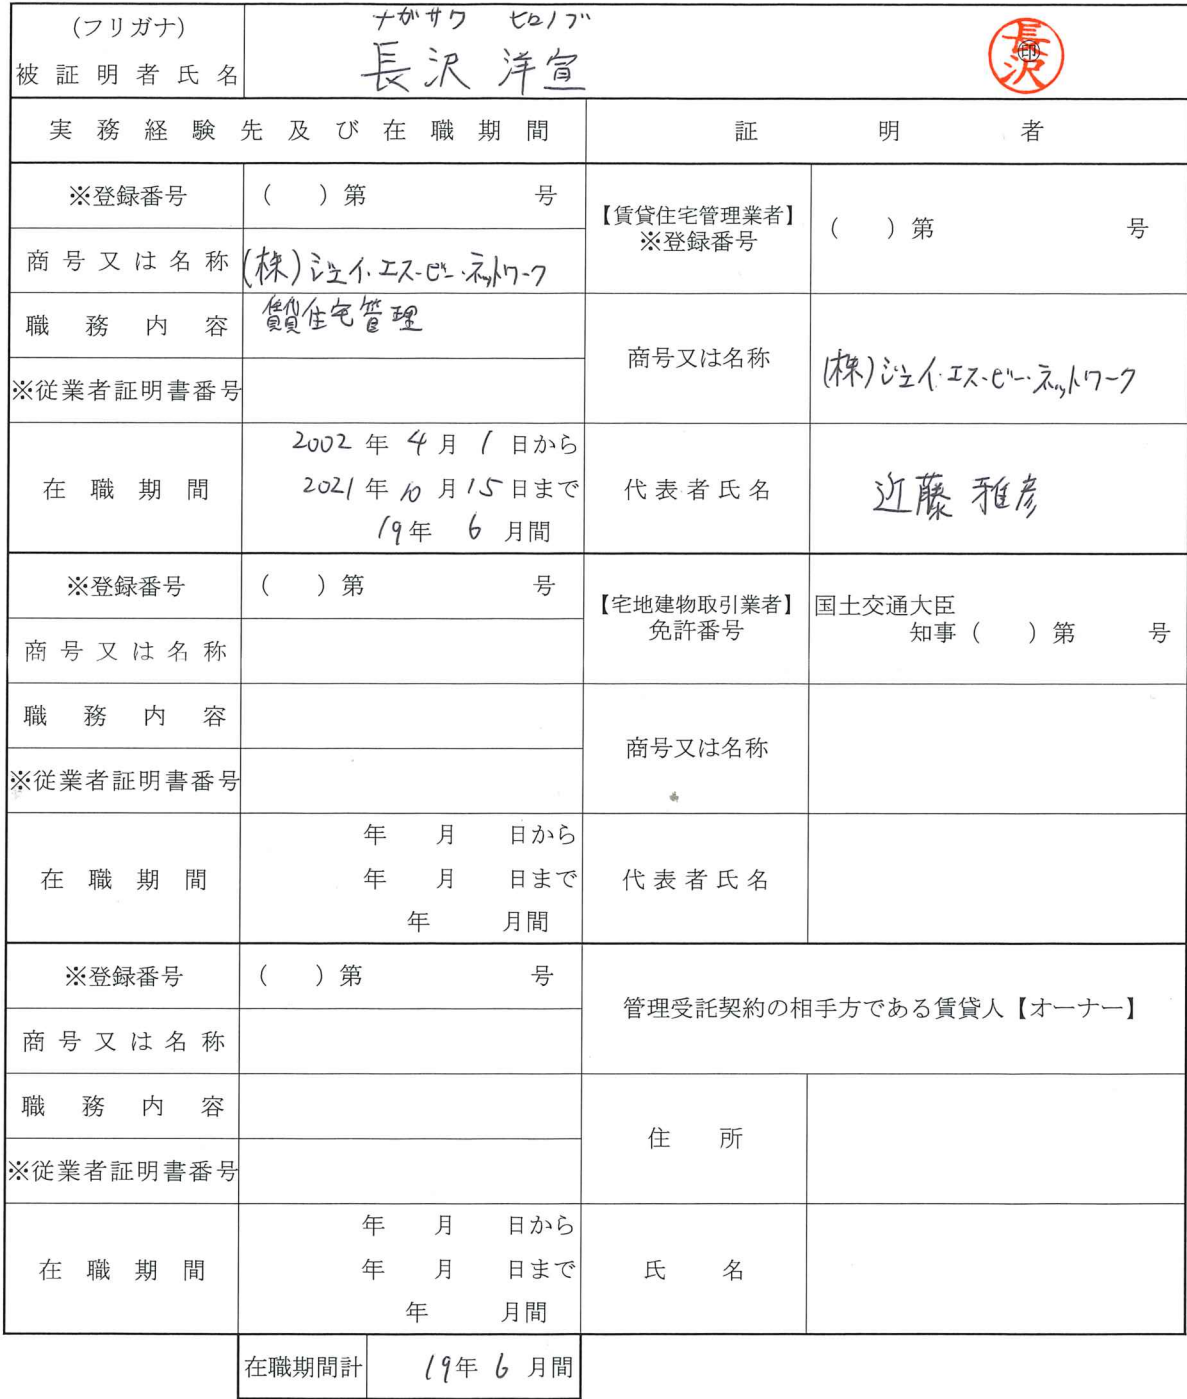 (フリガナ) ナガサワ ヒロノブ
被証明者氏名 長沢 洋宣 ㊞ 長沢
実務経験先及び在職期間 証明者
※登録番号 ( )第 号 【賃貸住宅管理業者】※登録番号 ( )第 号
商号又は名称 (株)ジェイ・エス・ビー・ネットワーク
職務内容 賃貸住宅管理
商号又は名称 (株)ジェイ・エス・ビー・ネットワーク
※従業者証明書番号
在職期間 2002年4月1日から
2021年10月15日まで
19年 6月間
代表者氏名 近藤 雅彦
※登録番号 ( )第 号 【宅地建物取引業者】免許番号 国土交通大臣
知事( )第 号
商号又は名称
職務内容
商号又は名称
※従業者証明書番号
在職期間 年 月 日から
年 月 日まで
年 月間
代表者氏名
※登録番号 ( )第 号
管理受託契約の相手方である賃貸人【オーナー】
商号又は名称
職務内容
住所
※従業者証明書番号
在職期間 年 月 日から
年 月 日まで
年 月間
氏名
在職期間計 19年 6月間